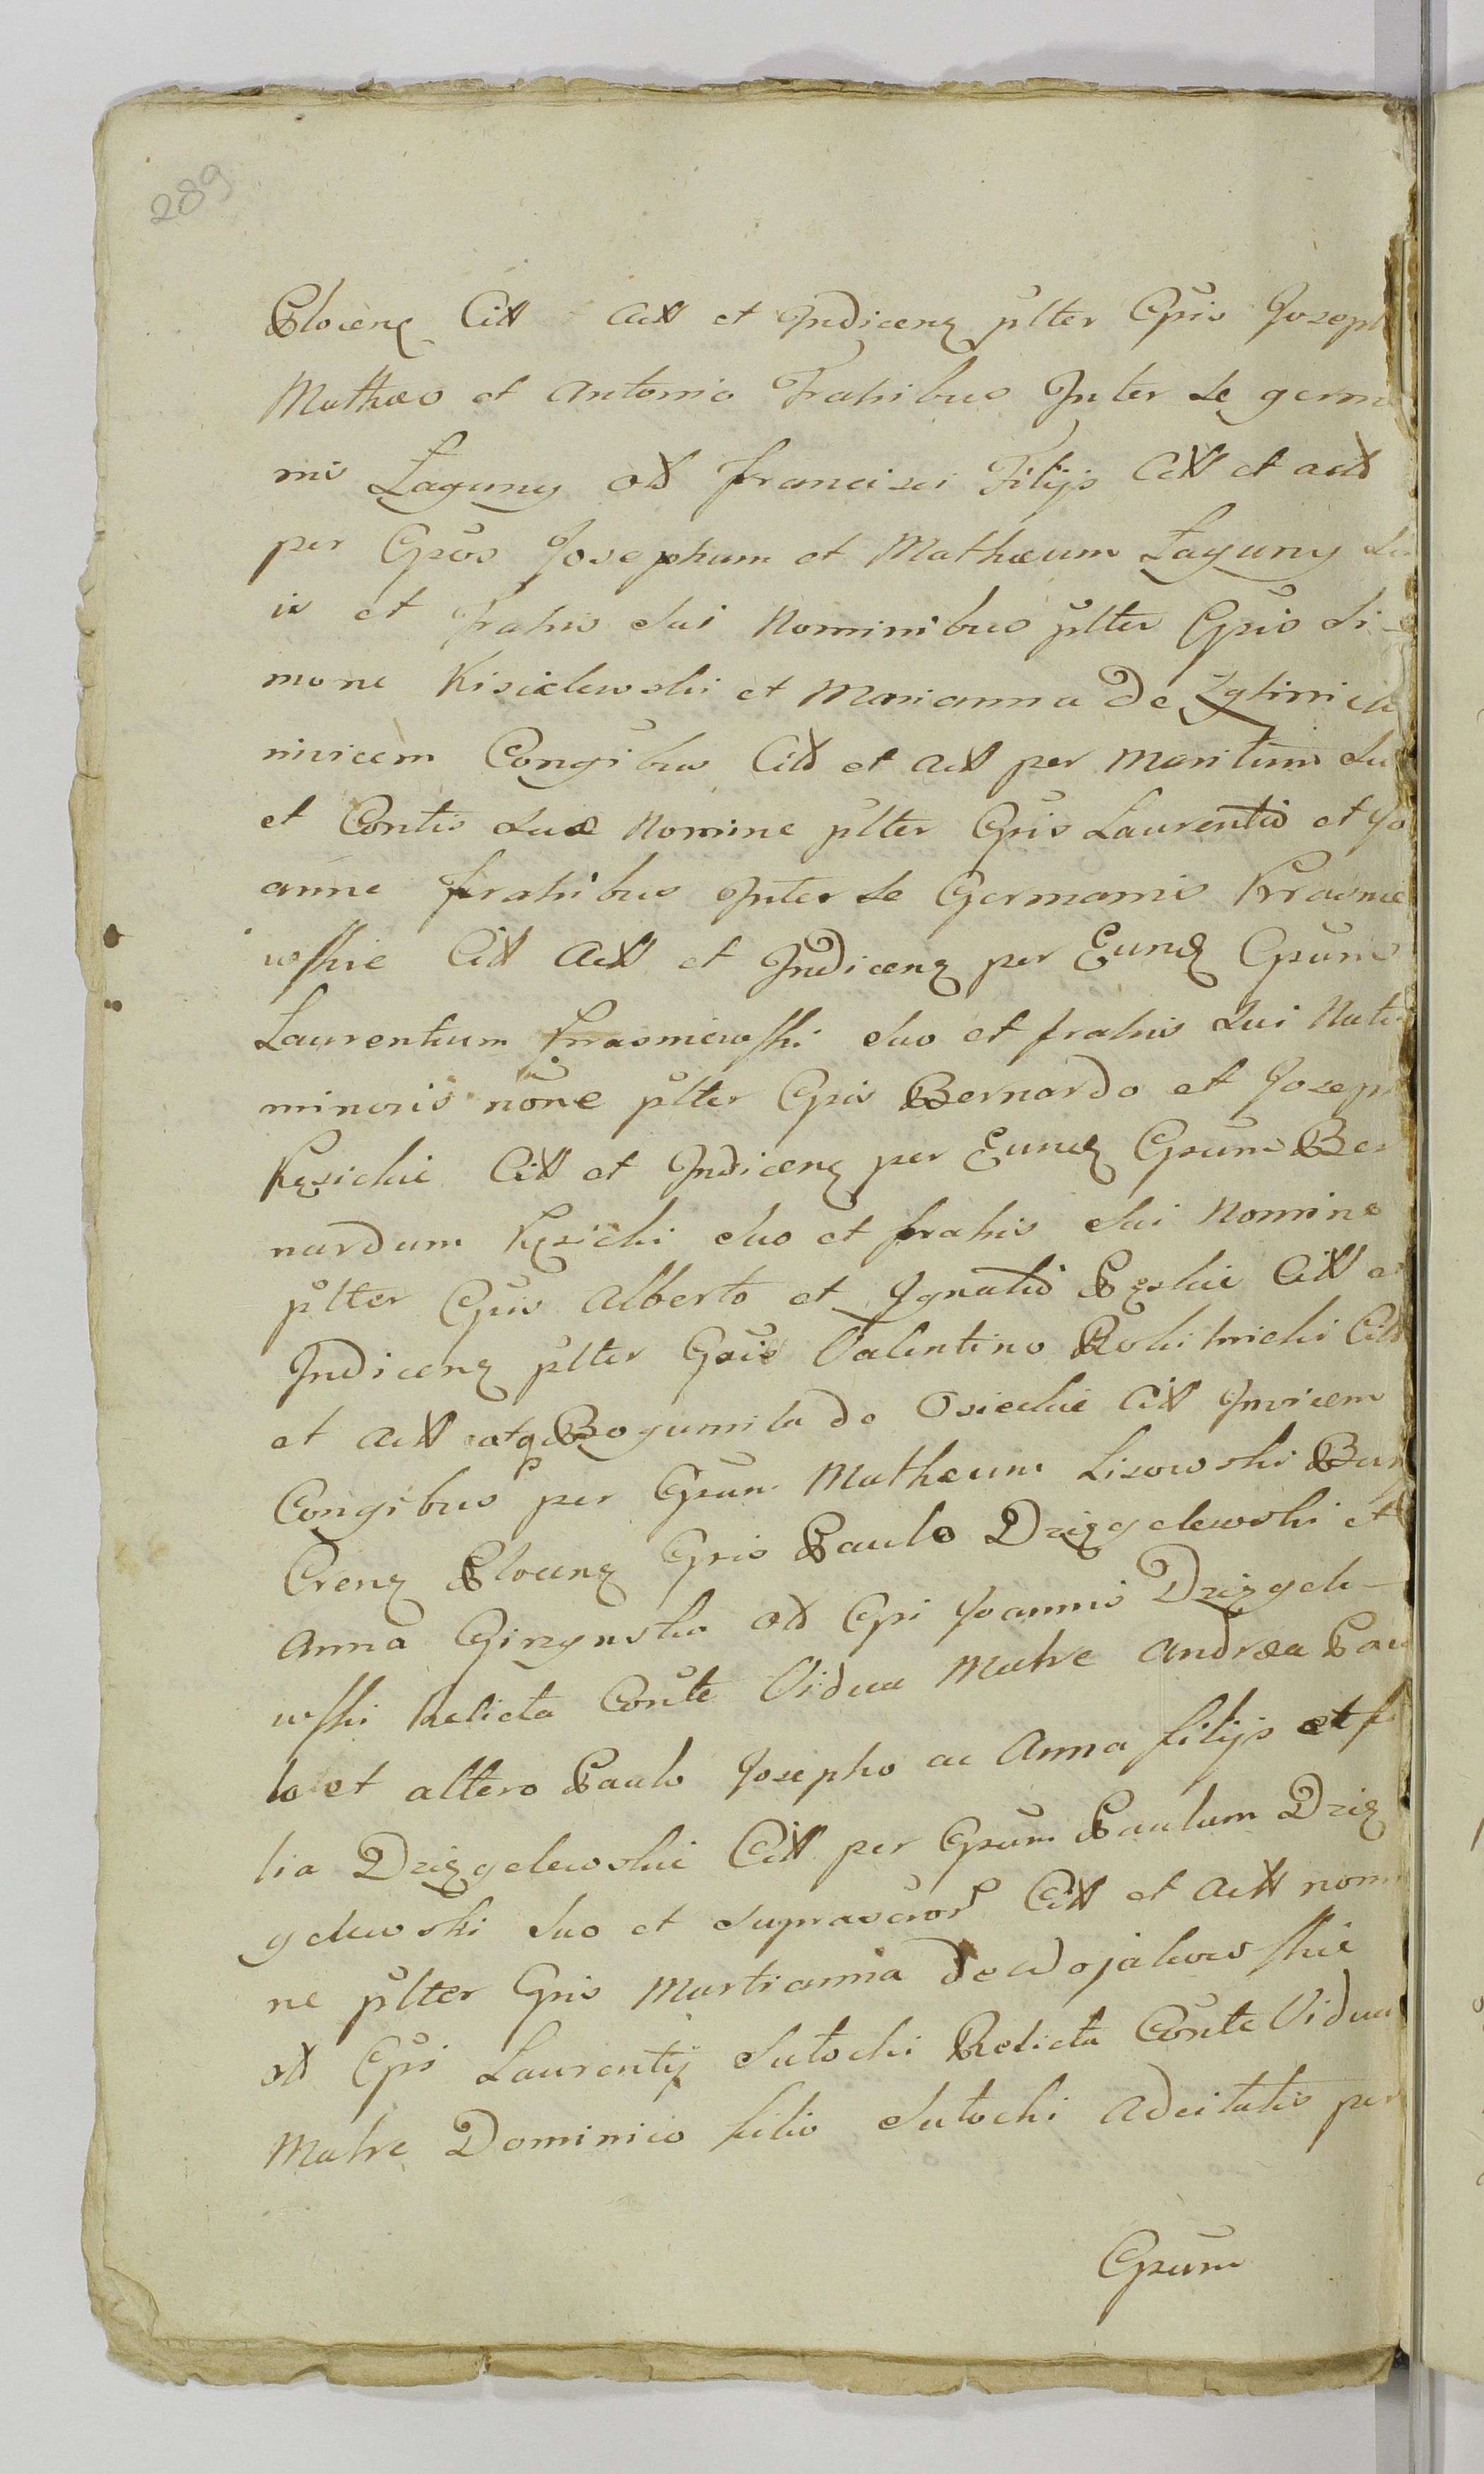 289
Plocenς Citt Actt et Indicenς pltter Gsis Joseph
Mathæo et Antonio Fratribus Inter se germa
nis Łaguny ott Francisci Filijs Citt et actt
per Gsos Josephum et Mathæum Łaguny Su
is et Fratris Sui Nominibus pltter Gsis Si-
mone Kisielewski et Marianna De Zglinic
nivicem Congibus Citt et actt per Maritum Su
et Contis Suæ Nomine pltter Gsis Laurentio et Jo
anne fratribus Inter se Germanis Krasnie
wskie Citt Actt et Indicenς per Eundς Gsum
Laurentium Krasniewski Suo et fratris Sui Natu
minoris nõne pltter Gsis Bernardo et Joseph
Kęsickie Citt et Indicenς per Eundς Gsum Ber
nardum Kęsicki Suo et fratris Sui Nomine
pltter Gsis Alberto et Ignatio Pęskie Citt et
Indicenς pltter Gsis Valentino Rokitnicki Citt
et actt atq Bogumila de Osieckie Citt Invicem
Congibus per Gsum Mathæum Lisowski Bur
Crenς Plocenς Gsis Paulo Dzięgelewski et
Anna Girzynska ott Gsi Joannis Dzięgele-
wski Relicta Conte Vidua Matre Andræa Pau
lo et altero Paulo Josepho ac Anna filijs et fi
lia Dzięgelewskie Citt per Gsum Paulum Dzię
gelewski Suo et Suprascror Citt et actt nomi
ne pltter Gsis Martianna de Wojakowskie
ott Gsi Laurentij Sutocki Relicta Conte Vidua
Matre Dominico filio Sutocki Adcitatis per
Gsum